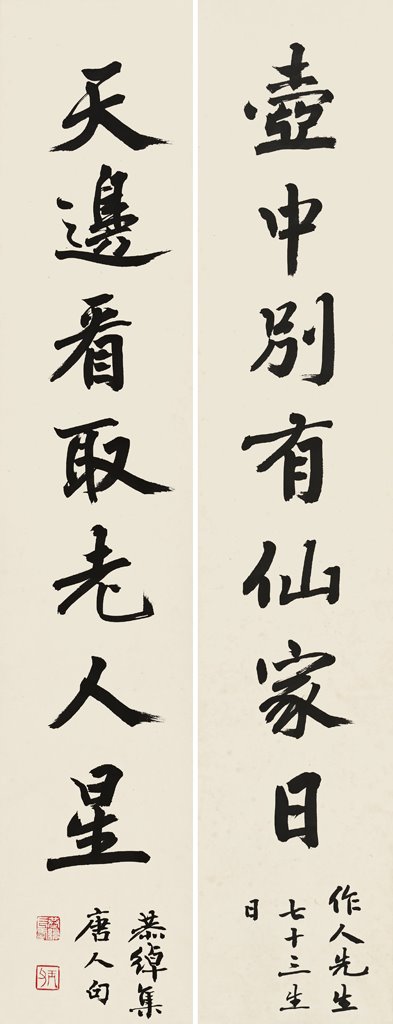 壺中別有仙家日
作人先生
七十三生
日
天邊看取老人星
恭綽集
唐人句